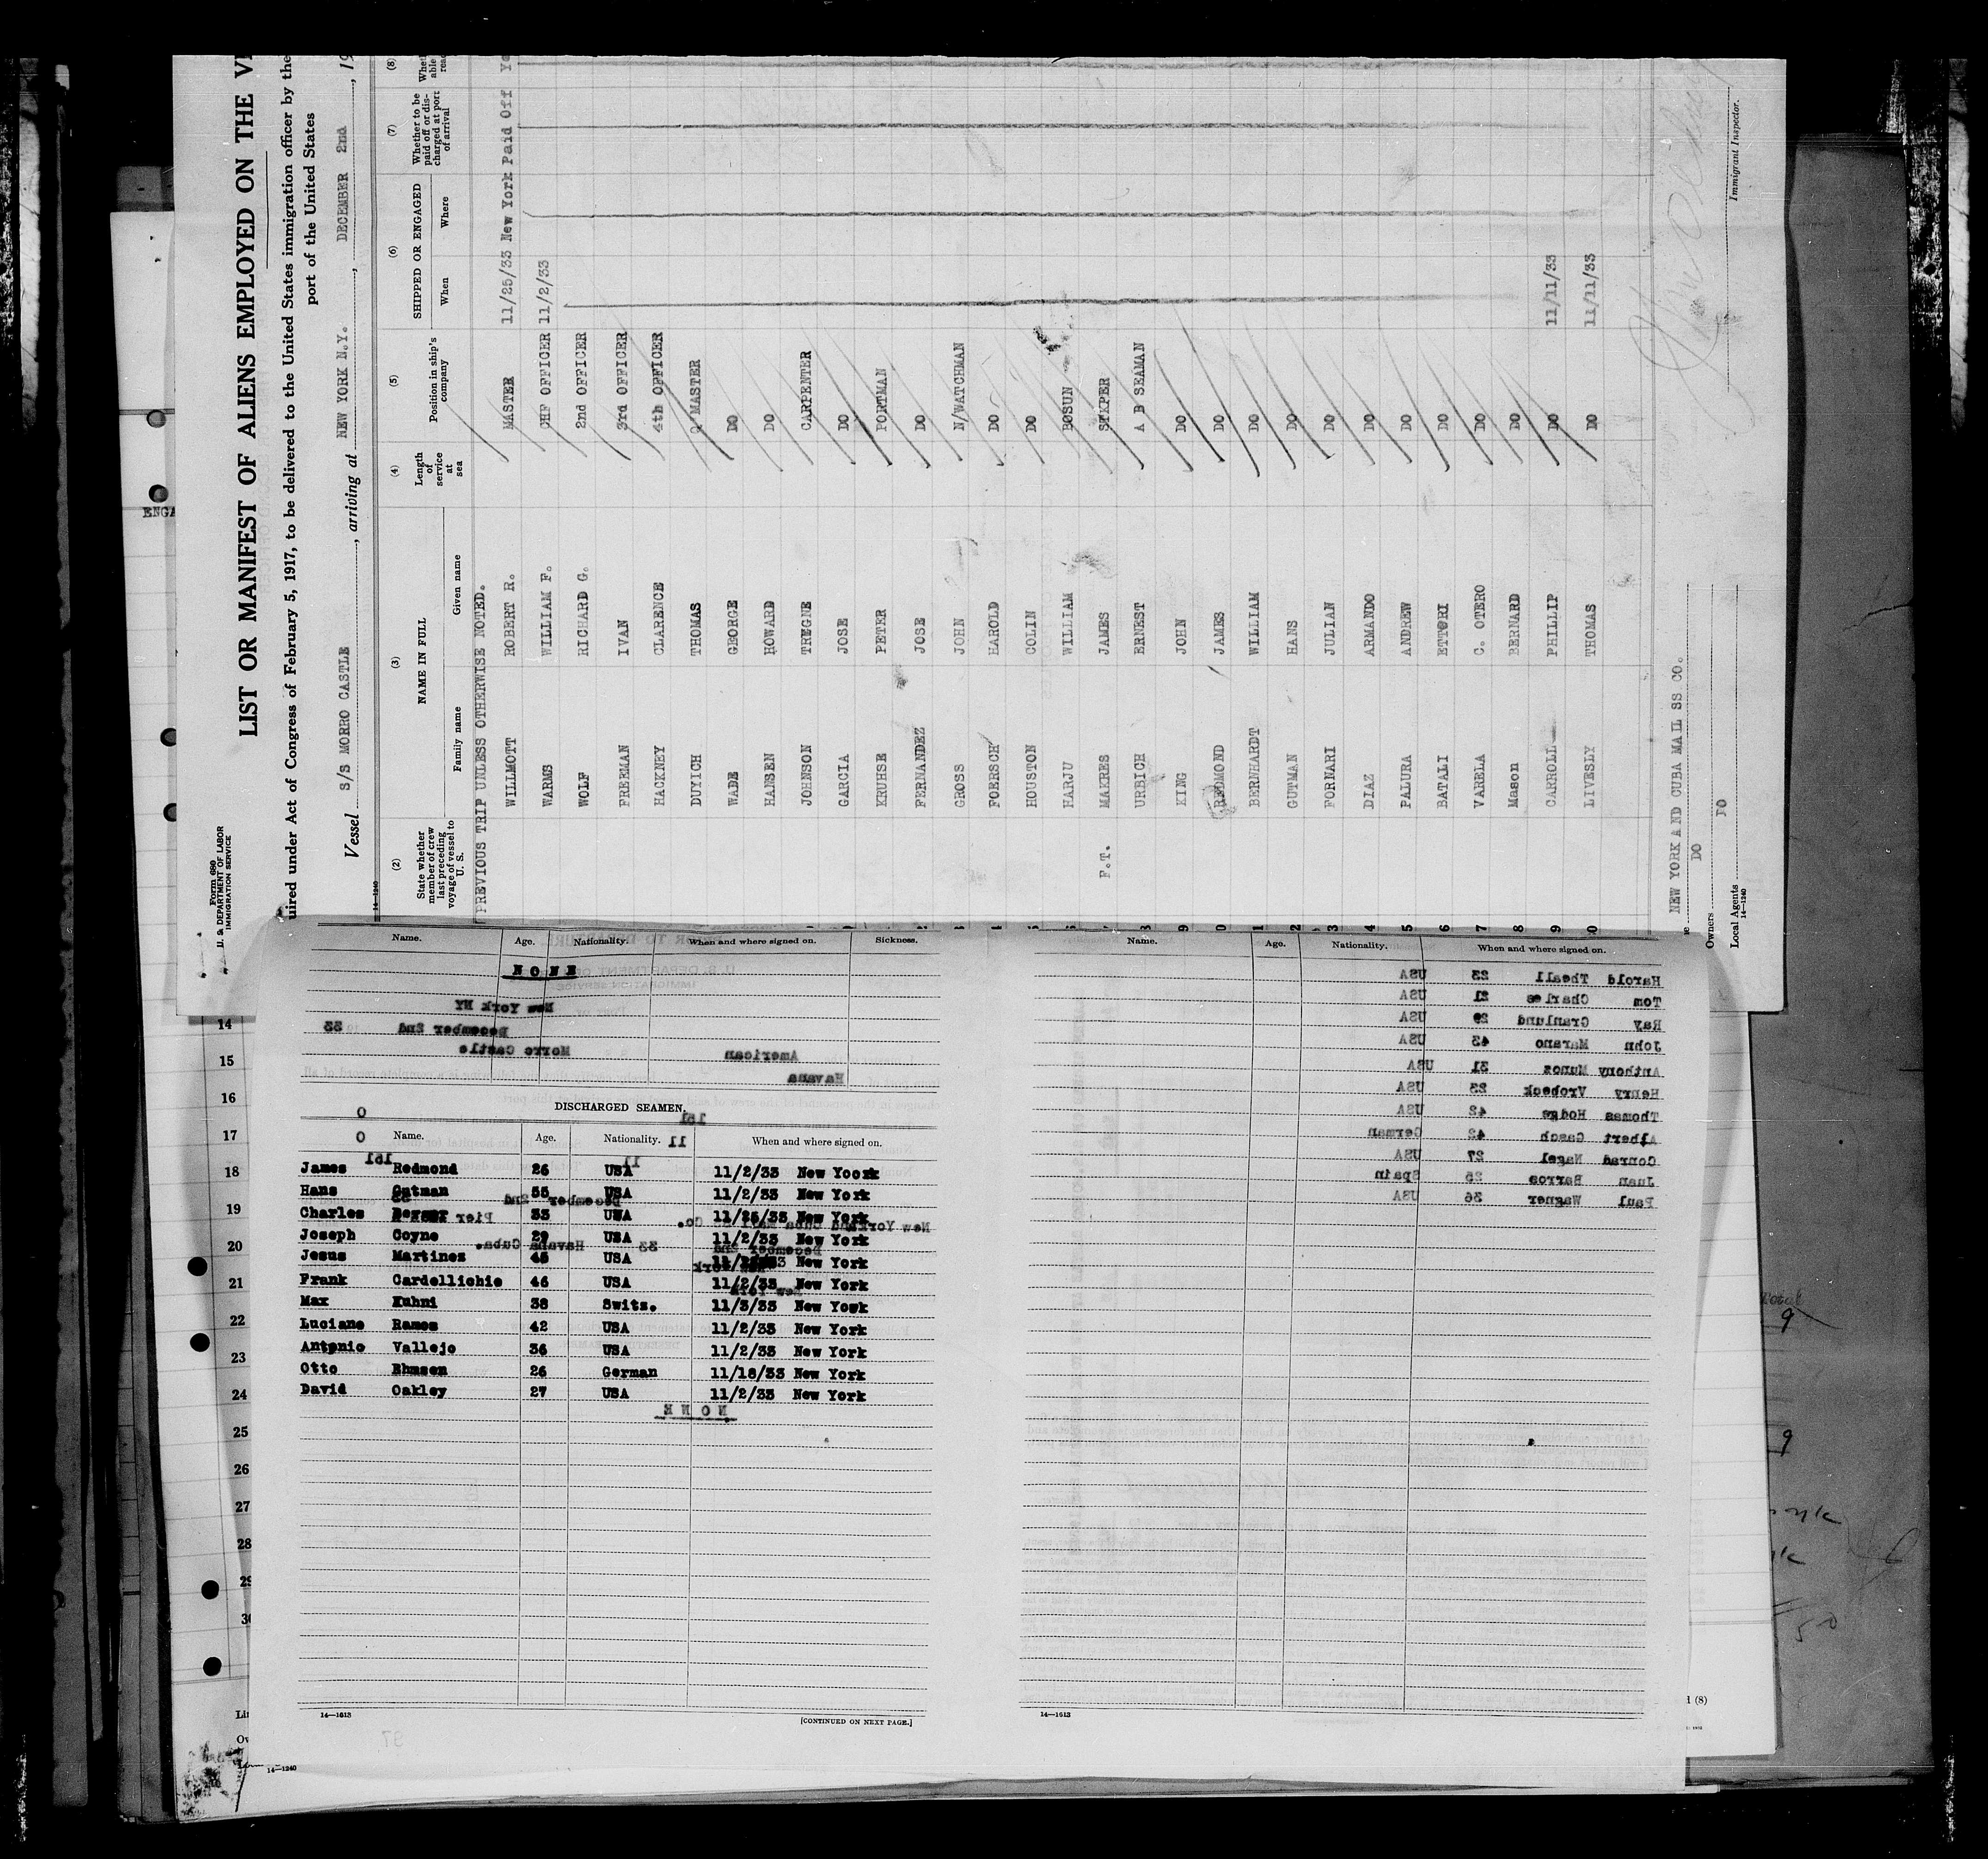 Form 680
U. S. DEPARTMENT OF LABOR
IMMIGRATION SERVICE
LIST OR MANIFEST OF ALIENS EMPLOYED ON THE
uired under Act of Congress of February 5, 1917, to be delivered to the United States immigration officer by the
port of the United States
Vessel S/S MORRO CASTLE, arriving at NEW YORK N.Y., DECEMBER 2nd, 19
(2) (3) (4) (5) (6) (7) (8)
State whether member of crew last preceding voyage of vessel to U. S.
NAME IN FULL
Family name Given name
Length of service at sea
Position in ship's company
SHIPPED OR ENGAGED
When Where
Whether to be paid off or discharged at port of arrival
PREVIOUS TRIP UNLESS OTHERWISE NOTED.
WILLMOTT ROBERT R. MASTER 11/25/33 New York Paid Off Ye
WARMS WILLIAM F. CHF OFFICER 11/2/33
WOLF RICHARD G. 2nd OFFICER
FREEMAN IVAN 3rd OFFICER
HACKNEY CLARENCE 4th OFFICER
DUYICH THOMAS Q MASTER
WADE GEORGE DO
HANSEN HOWARD DO
JOHNSON TRYGNE CARPENTER
GARCIA JOSE DO
KRUHSE PETER PORTMAN
FERNANDEZ JOSE DO
GROSS JOHN N/WATCHMAN
FOERSCH HAROLD DO
HOUSTON COLIN DO
HARJU WILLIAM BOSUN
F.T. MAKRES JAMES STKPER
URBICH ERNEST A B SEAMAN
KING JOHN DO
REDMOND JAMES DO
BERNHARDT WILLIAM DO
GUTMAN HANS DO
FORNARI JULIAN DO
DIAZ ARMANDO DO
PALURA ANDREW DO
BATALI ETTORI DO
VARELA C. OTERO DO
Mason BERNARD DO
CARROLL PHILLIP DO 11/11/33
LIVESLY THOMAS DO 11/11/33
NEW YORK AND CUBA MAIL SS CO.
DO
Owners DO
Local Agents
14—1240
Immigrant Inspector.
ENGA
Name. Age. Nationality. When and where signed on. Sickness.
NONE
New York NY
December 2nd 33
Morro Castle American
Havana
DISCHARGED SEAMEN.
Name. Age. Nationality. When and where signed on.
James Redmond 26 USA 11/2/33 New Yoork
Hans Gutman 55 USA 11/2/33 New York
Charles Berger 33 USA 11/25/33 New York
Joseph Coyne 29 USA 11/2/33 New York
Jesus Martines 45 USA New York
Frank Cardellichie 46 USA 11/2/33 New York
Max Kuhni 38 Switz. 11/3/33 New York
Luciano Rames 42 USA 11/2/33 New York
Antonio Vallejo 36 USA 11/2/33 New York
Otto Ehmsen 26 German 11/18/33 New York
David Oakley 27 USA 11/2/33 New York
NONE
14—1613
[CONTINUED ON NEXT PAGE.]
Name. Age. Nationality. When and where signed on.
Harold Theall 23 USA
Tom Charles 21 USA
Ray Granlund 29 USA
John Marano 43 USA
Anthony Munos 31 USA
Henry Vrobeck 23 USA
Thomas Hodge 42 USA
Albert Gasch 42 German
Conrad Nagel 27 USA
Juan Barros 25 Spain
Paul Wagner 36 USA
14—1613
14
15
16
17
18
19
20
21
22
23
24
25
26
27
28
29
14—1240
Total
9
9